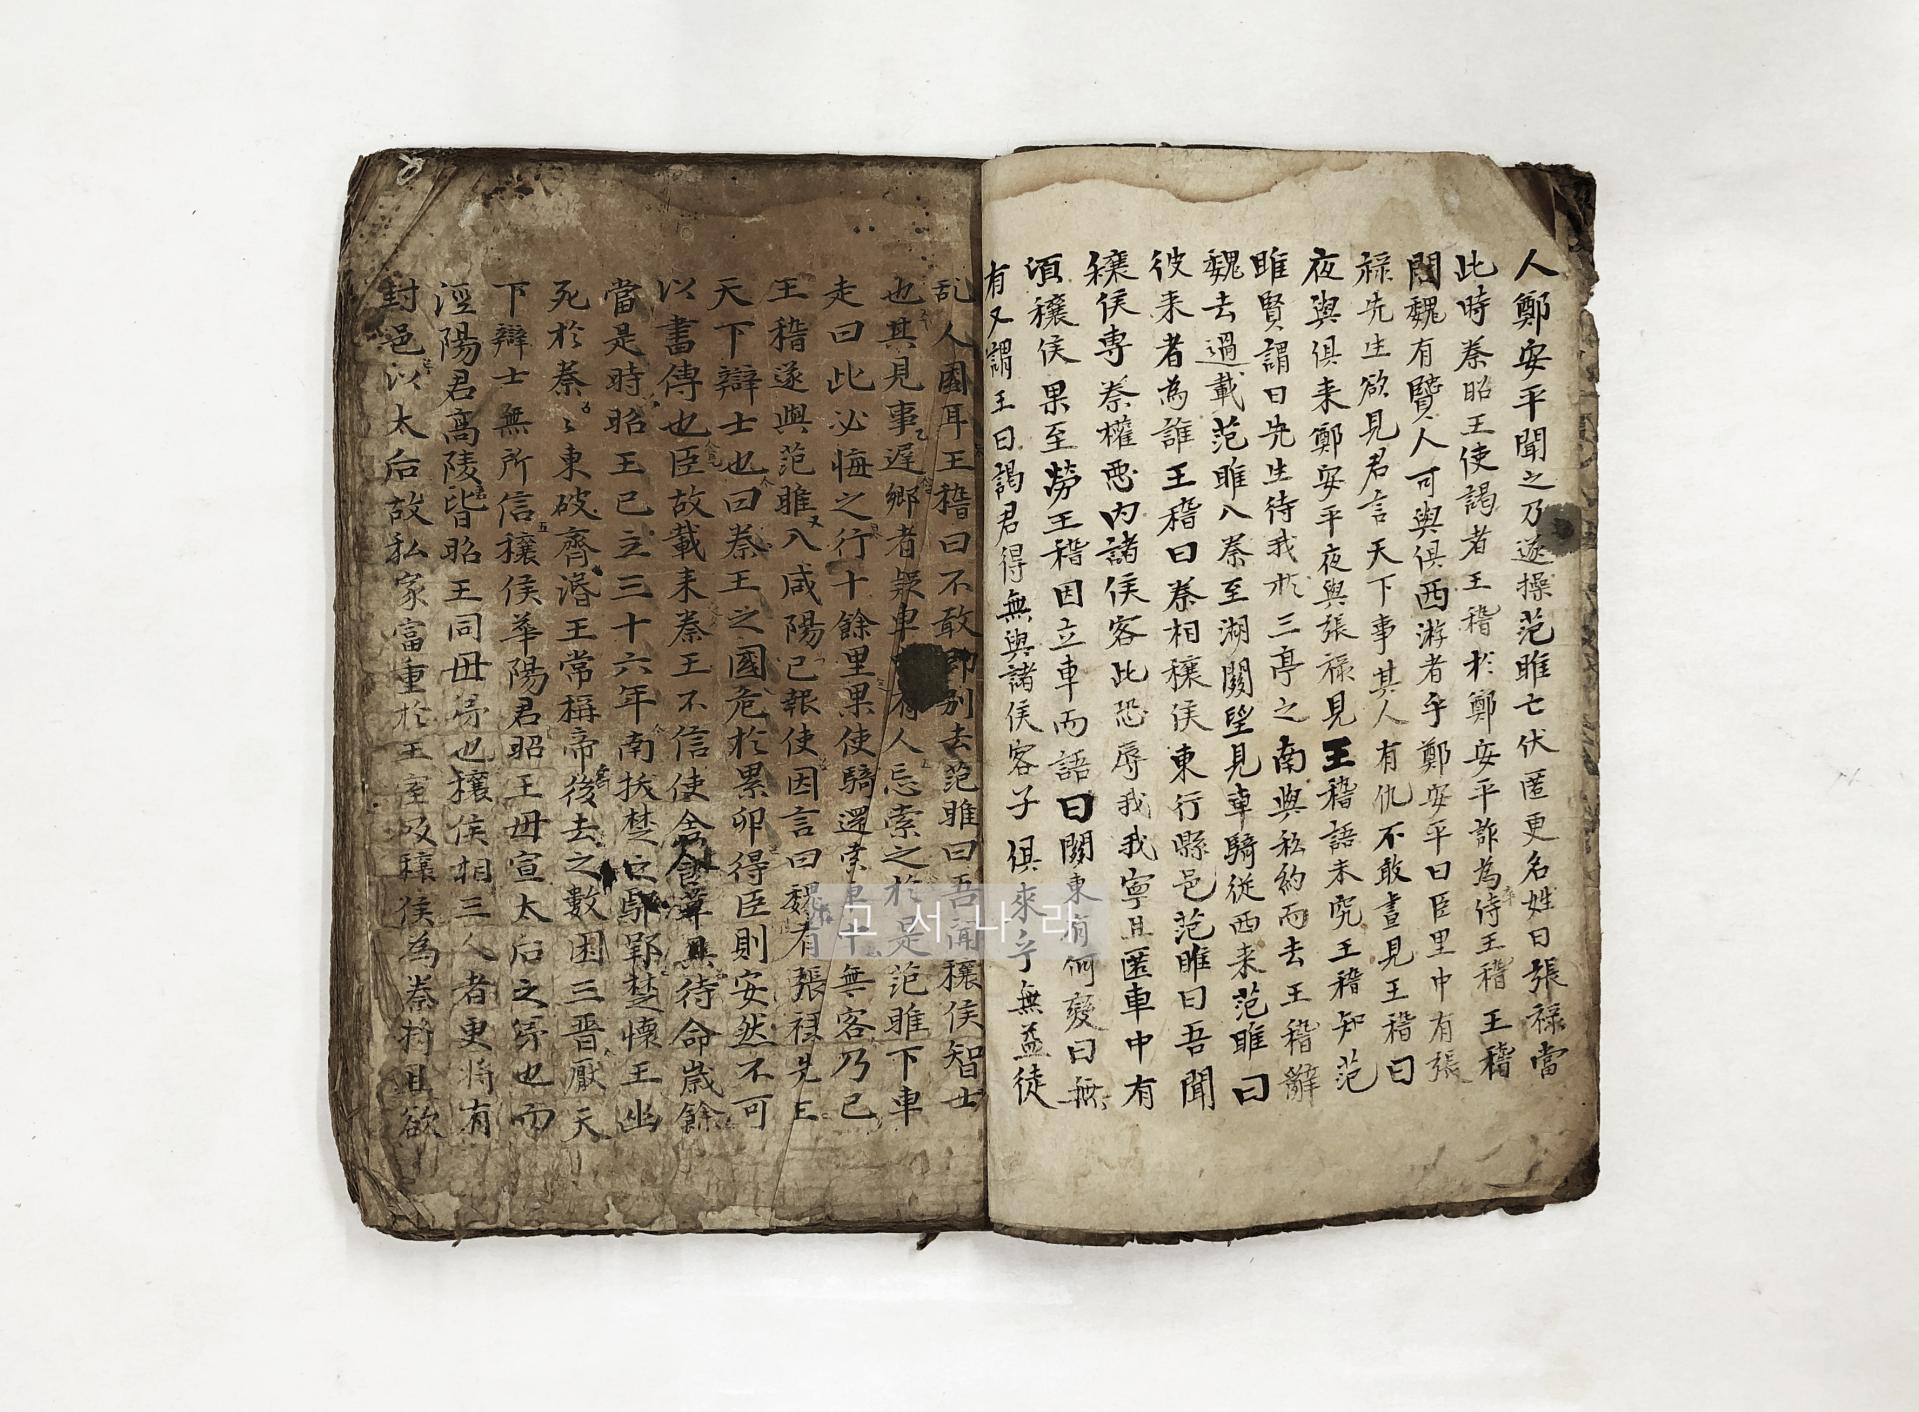 人鄭安平聞之乃遂操范雎亡伏匿更名姓曰張祿當
此時秦昭王使謁者王稽於鄭安平詐為侍王稽王稽
問魏有賢人可與俱西游者乎鄭安平曰臣里中有張
祿先生欲見君言天下事其人有仇不敢晝見王稽曰
夜與俱來鄭安平夜與張祿見王稽語未究王稽知范
雎賢謂曰先生待我於三亭之南與私約而去王稽辭
魏去過載范雎入秦至湖關望見車騎從西来范雎曰
彼来者為誰王稽曰秦相穰侯東行縣邑范雎曰吾聞
穰侯專秦權惡內諸侯客此恐辱我我寧且匿車中有
頃穰侯果至勞王稽因立車而語曰關東有何變曰無
有又謂王曰謁君得無與諸侯客子俱來乎無益徒
乱人國耳王稽曰不敢即別去范雎曰吾聞穰侯智士
也其見事遲鄉者疑車中有人忘索之於是范雎下車
走曰此必悔之行十餘里果使騎還索車中無客乃已
王稽遂與范雎入咸陽已報使因言曰魏有張祿先生
天下辯士也曰秦王之國危於累卵得臣則安然不可
以書傳也臣故載来秦王不信使舍食草具待命歲餘
當是時昭王已立三十六年南拔楚之鄢郢楚懷王幽
死於秦〻東破齊湣王常稱帝後去之數困三晋厭天
下辯士無所信穰侯華陽君昭王母宣太后之弟也而
涇陽君高陵皆昭王同母弟也穰侯相三人者更將有
封邑以太后故私家富重於王室及穰侯為秦將且欲
고서나라